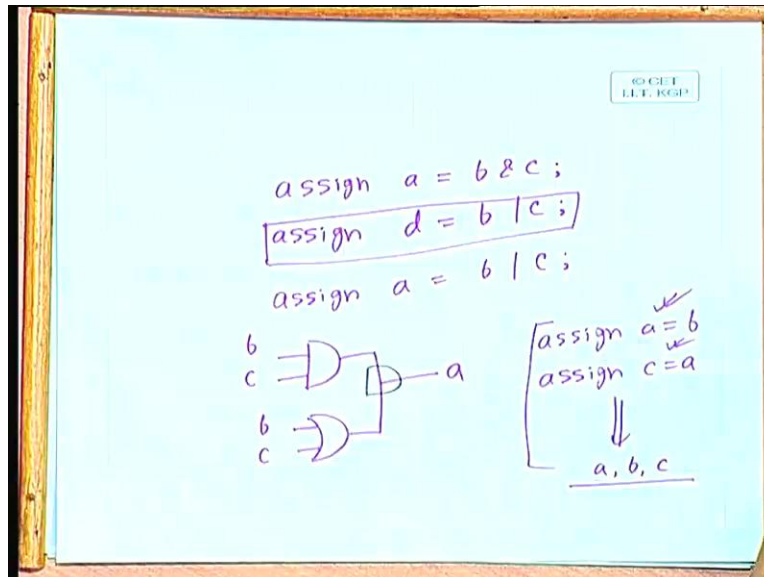 © CET
I.I.T. KGP
assign a = b & c ;
assign d = b | c ;
assign a = b | c ;
b
c
a
b
c
assign a = b
assign c = a
a, b, c